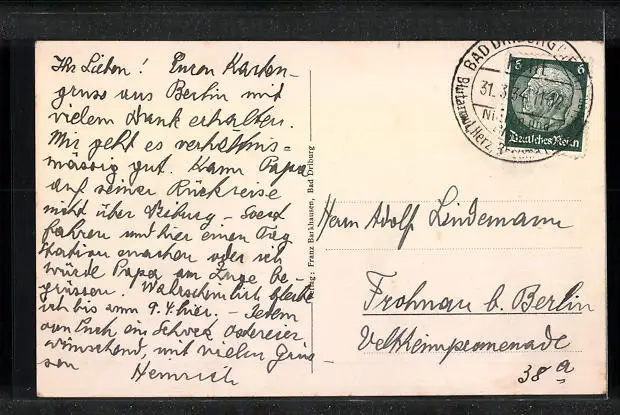 Ihr Lieben! Euren Karten-
gruss aus Berlin mit
vielem Dank erhalten.
Mir geht es verhältnis-
mässig gut. Kann Papa
auf seiner Rückreise
nicht über Driburg - Soest
fahren und hier einen Tag
Station machen oder ich
würde Papa am Zuge be-
grüssen. Wahrscheinlich bleibe
ich bis zum 9.4. hier. - Jedem
von Euch ein Schock Ostereier
wünschend, mit vielen Grüs-
sen
Heinrich
Verlag: Franz Barkhausen, Bad Driburg
BAD DRIBURG
31.3.34
Blutarmut, Herz
6 6
Deutsches Reich
Herrn Adolf Lindemann
Frohnau b. Berlin
Veltheimpromenade
38a